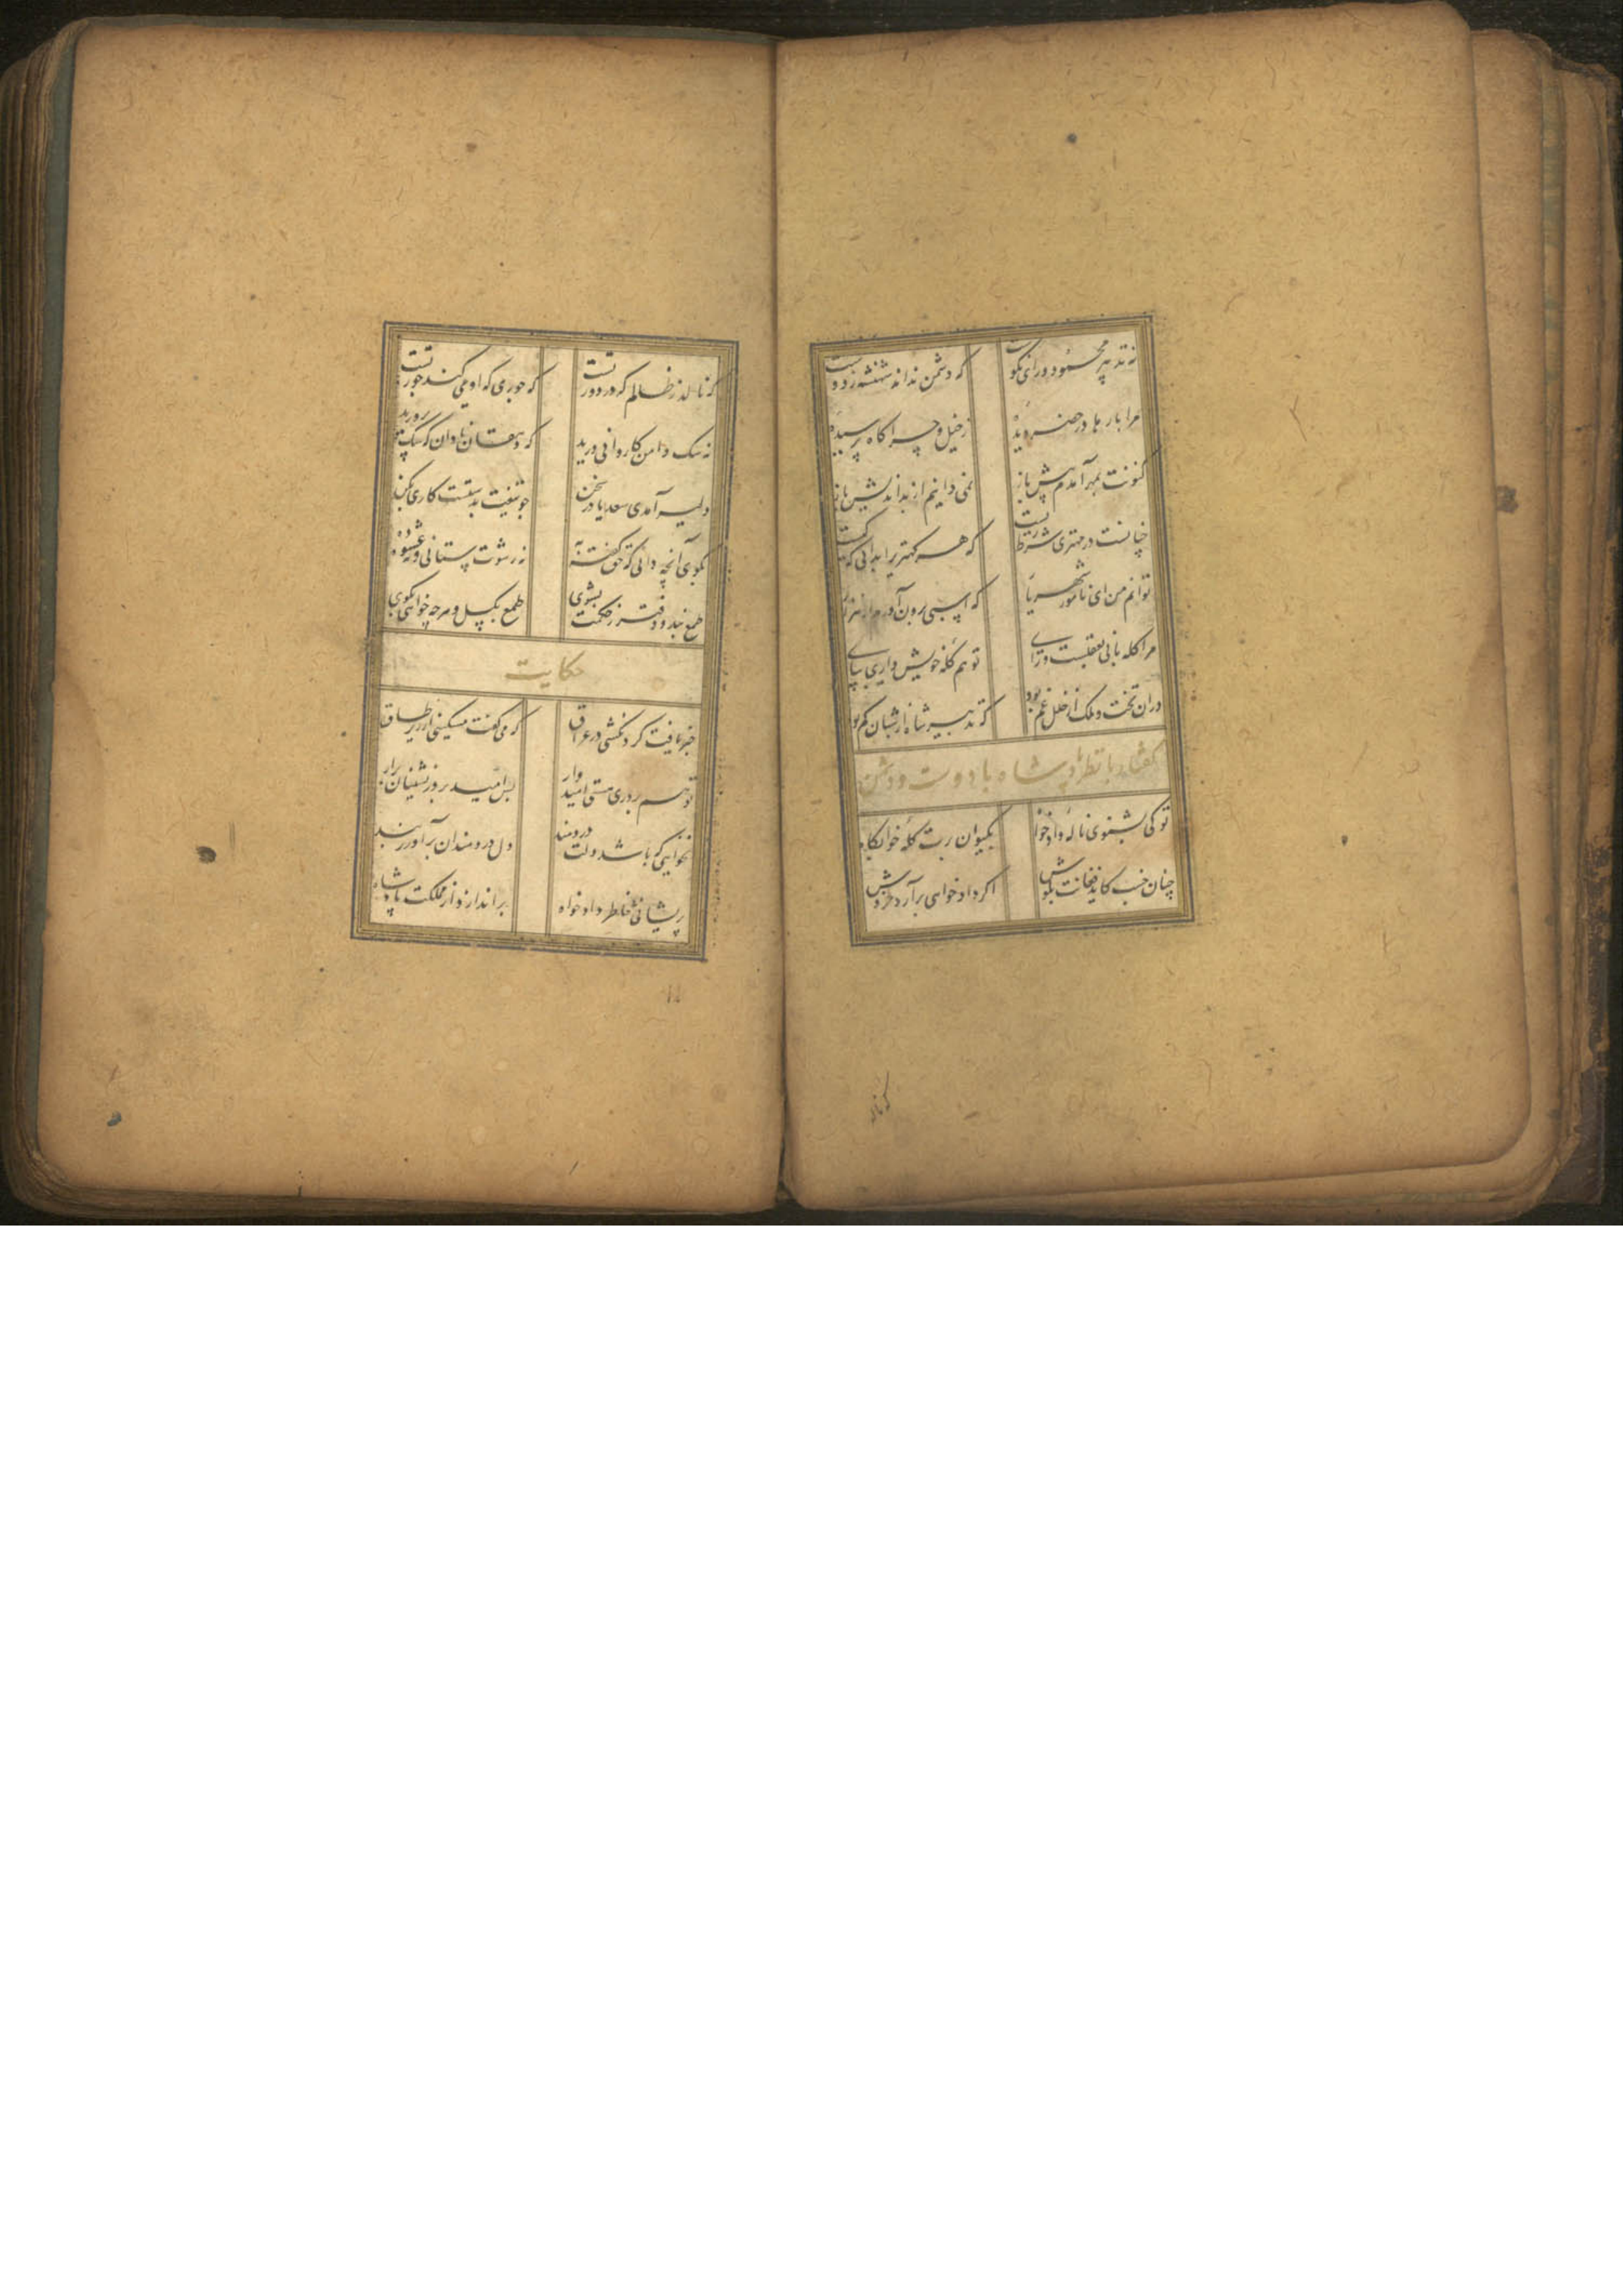 نه تدبیر محمود و رای نکوست
که دشمن نداند شهنشه ز دوست
مرا بارها در حضر دیده
ز خیل و چراگاه پرسیده
کنونت بمهر آمدم پیش باز
نمی دانیم از بداندیش باز
چنانست در مهتری شرط زیست
که هر کهتریرا بدانی که کیست
توانم من ای نامور شهریار
که اسپی برون آورم از هزار
مرا کله بانی بعقلست و رای
تو هم کله خویش داری بپای
دران تخت و ملک از خلل غم بود
که تدبیر شاه از شبان کم بود
گفتار در نظر پادشاه با دوست و دشمن
تو کی بشنوی ناله دادخواه
بکیوان برت کله خوابکاه
چنان خسب کاید فغانت بکوش
اگر دادخواهی برآرد خروش
که نالد
که نالد ز ظالم که در دور تست
که جوری که او می کند جور تست
نه سک دامن کاروانی درید
که دهقان نادان که سک پرورید
دلیر آمدی سعدیا در سخن
چو تیغت بدستست کاری بکن
بکوی آنچه دانی که حق کفته به
نه رشوت ستانی و نه عشوه ده
طمع بند و دفتر ز حکمت بشوی
طمع بکسل و هرچه خواهی بکوی
حکایت
خبر یافت کردنکشی در عراق
که می کفت مسکینی از زیر طاق
تو هم بر دری هستی امیدوار
پس امید بر در نشینان برار
نخواهی که باشد دلت دردمند
دل دردمندان برآور ز بند
پریشانی خاطر دادخواه
براندازد از مملکت پادشاه